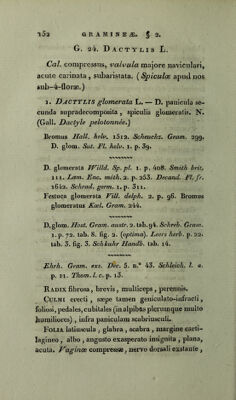 152 GRAMINEÆ. § 2.
G. 24. DACTYLIS L.
Cal. compressus, valvula majore naviculari,
acute carinata, subaristata. (Spiculæ apud nos
sub-4-floræ.)
1. DACTYLIS glomerata L. — D. panicula se-
cunda supradecomposita, spiculis glomeratis. N.
(Gall. Dactyle pelotonnée.)
Bromus Hall. helv. 1512. Scheuchz. Gram. 299.
D. glom. Sut. Fl. helv. 1. p. 39.
D. glomerata Willd. Sp. pl. 1. p. 408. Smith brit.
111. Lam. Enc. mith. 2. p. 253. Decand. Fl. fr.
1642. Schrad. germ. 1. p. 311.
Festuca glomerata Vill. delph. 2. p. 96. Bromus
glomeratus Kœl. Gram. 244.
D. glom. Host. Gram. austr. 2. tab. 94. Schreb. Gram.
1. p. 72. tab. 8. fig. 2. (optima). Leers herb. p. 22.
tab. 3. fig. 3. Schkuhr Handb. tab. 14.
Ehrh. Gram. exs. Dec. 5. n.° 43. Schleich. l. a.
p. 21. Thom. l. c. p. 13.
RADIX fibrosa, brevis, multiceps, perennis.
CULMI erecti, sæpe tamen geniculato-infracti,
foliosi, pedales, cubitales (in alpibus plerumque multo
humiliores), infra paniculam scabriusculi.
FOLIA latiuscula, glabra, scabra, margine carti-
lagineo, albo, angusto exasperato insignita, plana,
acuta. Vaginæ compressæ, nervo dorsali exstante,